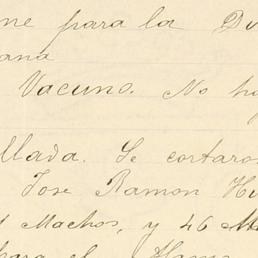 ne para la Du
ana
Vacuno. No ha
llada. Se cortaro
Jose Ramon Hi
Machos, y 46 M
para el